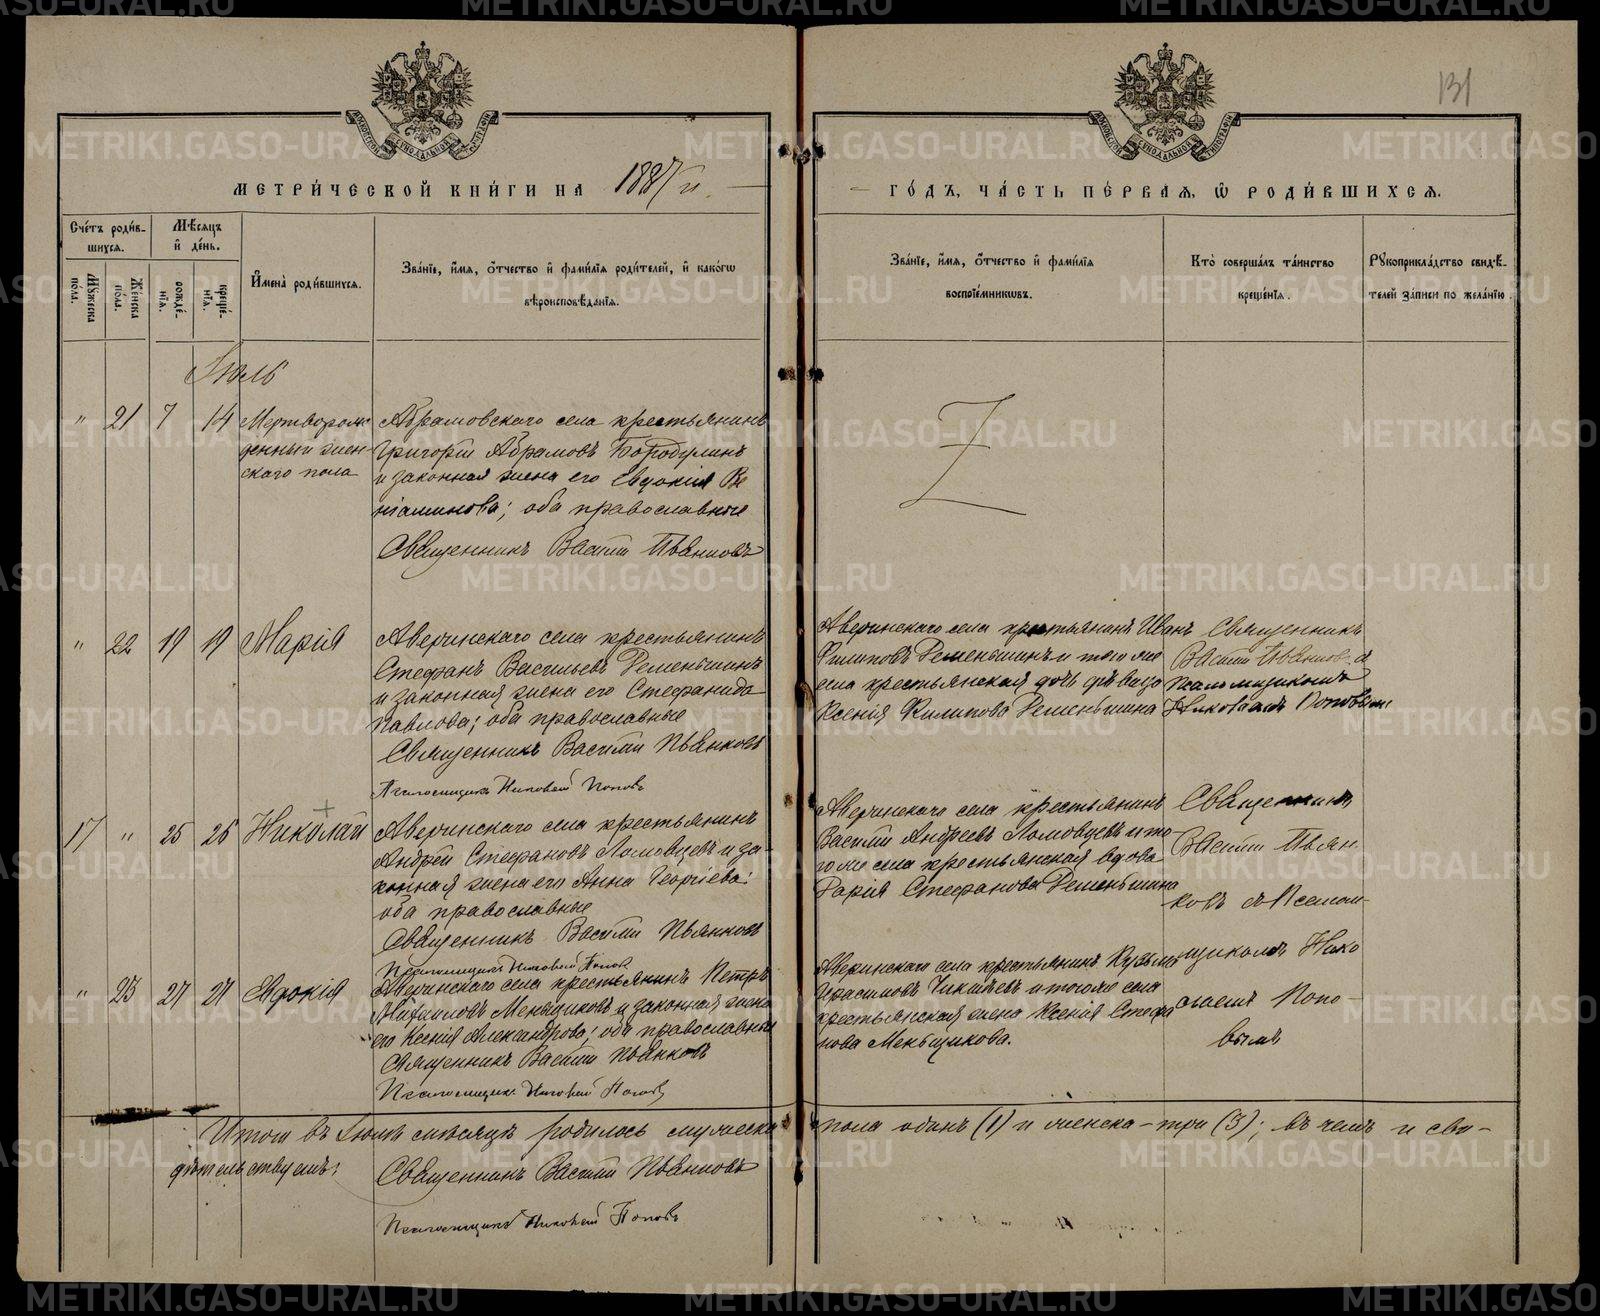 131
МЕТРИ́ЧЕСКОЙ КНИ́ГИ НА 1887 й
ГО́ДЪ, ЧА́СТЬ ПЕ́РВАЯ, Ѡ РОДИ́ВШИХСЯ.
Сче́тъ роди́вшихся.
Мужеска пола.
Же́нска пола.
Мѣсяцъ и҆ де́нь.
рожде́нїя.
креще́нїя.
И҆мена̀ роди́вшихся.
Зва́нїе, и҆мя, о҆тчество и҆ фами́лїя роди́телей, и҆ како́гѡ
вѣроисповѣ́данїя.
Зва́нїе, и҆мя, о҆тчество и҆ фами́лїя
воспрїе́мниковъ.
Кто̀ соверша́лъ та́инство
креще́нїя.
Рꙋкоприкла́дство свидѣ́-
телей за́писи по жела́нїю.
Іюль
" 21 7 14
Мертворож
денный жен-
скаго пола
Абрамовскаго села крестьянинъ
Григорій Абрамовъ Бородулинъ
и законная жена его Евдокія Ве
ніаминова; оба православные
Священникъ Василій Пьянковъ
" 22 19 19 Марія
Аверинскаго села крестьянинъ
Стефанъ Васильевъ Деменьшинъ
и законная жена его Стефанида
Павлова; оба православные
Священникъ Василій Пьянковъ
Псаломщикъ Николай Поповъ
Аверинскаго села крестьянинъ Иванъ
Филиповъ Деменьшинъ и того же
села крестьянская дочь дѣвица
Ксенія Филипова Деменьшина
Священникъ
Василій Пьянковъ съ
псаломщикомъ
Николаемъ Поповымъ
17 " 25 26 Николай
Аверинскаго села крестьянинъ
Андрей Стефановъ Ломовцевъ и за-
конная жена его Анна Георгіева;
оба православные
Священникъ Василій Пьянковъ
Псаломщикъ Николай Поповъ
Аверинскаго села крестьянинъ
Василій Андреевъ Ломовцевъ и то
го же села крестьянская вдова
Дарія Стефанова Деменьшина
Священникъ
Василій Пьян
ковъ съ Псалом-
щикомъ Нико
лаемъ Попо-
вымъ
" 23 27 27 Евдокія
Аверинскаго села крестьянинъ Петръ
Михаиловъ Меньщиковъ и законная жена
его Ксенія Александрова; оба православные
Священникъ Василій Пьянковъ
Псаломщикъ Николай Поповъ
Аверинскаго села крестьянинъ Кузьма
Герасимовъ и того же села
крестьянская жена Ксенія Стефа
нова Меньщикова.
Итого въ Іюлѣ мѣсяцѣ родилось мужеска пола одинъ (1) и женска – три (3); въ чемъ и сви-
дѣтельствуемъ:
Священникъ Василій Пьянковъ
Псаломщикъ Николай Поповъ